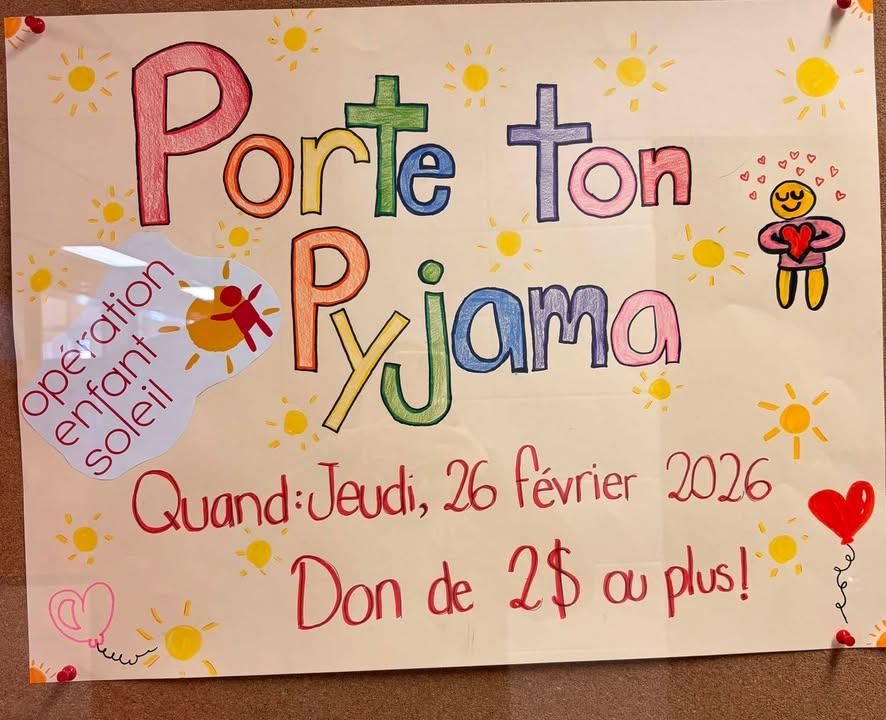 Porte ton
Pyjama
opération
enfant
soleil
Quand: Jeudi, 26 février 2026
Don de 2$ ou plus!